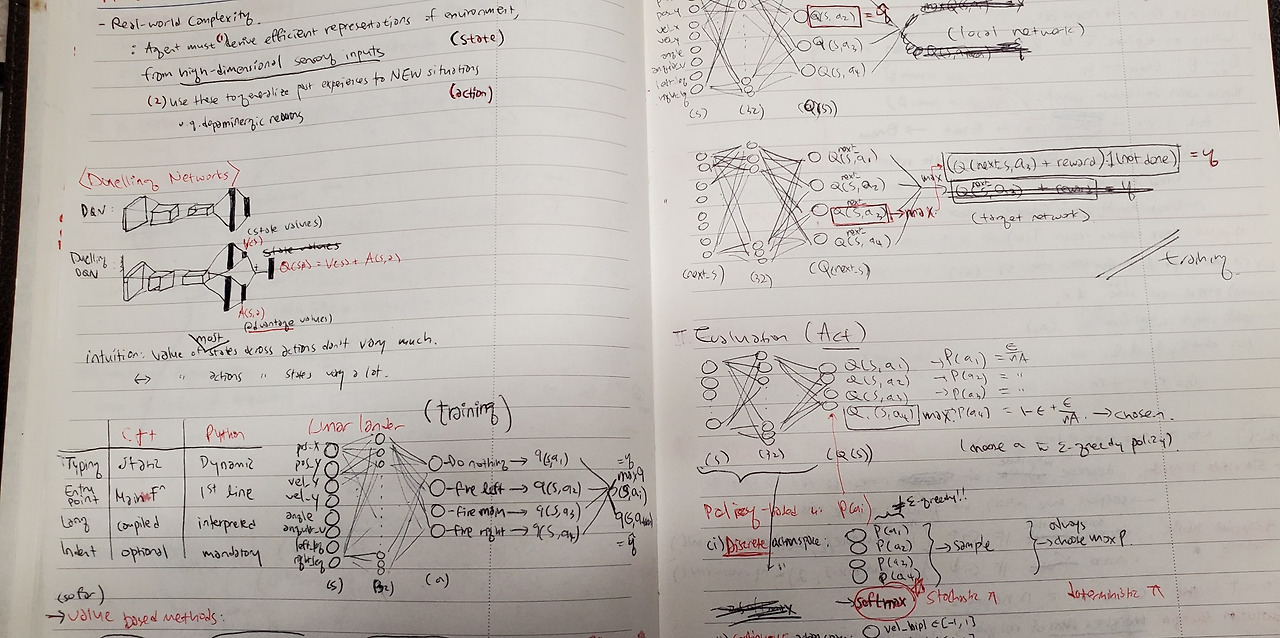 - Real-world complexity.
: Agent must (1) derive efficient representations of environment,
from high-dimensional sensory inputs (state)
(2) use these to generalize past experiences to NEW situations
(action)
<Duelling Networks>
DQN:
(state values)
Duelling DQN
V(s)
Q(s,a) = V(s) + A(s,a)
A(s,a)
(advantage values)
intuition: value of most states across actions don't vary much.
↔ " actions " states vary a lot.
C++ Python
Typing static Dynamic
Entry Point Main Fn 1st line
Lang compiled interpreted
Indent optional mandatory
Lunar lander (training)
pos_x
pos_y
vel_x
vel_y
angle
(s) (32) (a)
Do nothing → q(s,a1)
fire left → q(s,a2)
fire main → q(s,a3)
fire right → q(s,a4)
= q
max q
(so far)
→ value based methods:
Q(s,a2) = q
Q(s,a3)
Q(s,a4)
(local network)
(s) (32) (Q(s))
Q(next_s,a1)
Q(next_s,a2)
Q(next_s,a3) → max
Q(next_s,a4)
max
(Q(next_s,a3) + reward)·1(not done) = q
(target network)
(next_s) (32) (Q(next_s))
training
II Evaluation (Act)
Q(s,a1) → P(a1) = ε/nA
Q(s,a2) → P(a2) = "
Q(s,a3) → P(a3) = "
Q(s,a4) max: P(a4) = 1-ε + ε/nA → chosen.
(s) (32) (Q(s))
(choose a w ε-greedy policy)
Policy-based
P(a1)
≠ ε-greedy!!
(i) Discrete action space:
P(a1)
P(a2)
P(a3)
P(a4)
→ sample
always
→ chose max P.
→ softmax stochastic π deterministic π
∈ [-1, 1]